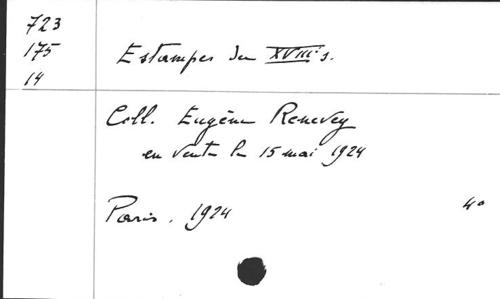 723
175
14
Estampes du XVIIIe s.
Coll. Eugène Renevey
en vente le 15 mai 1924
Paris. 1924
4o